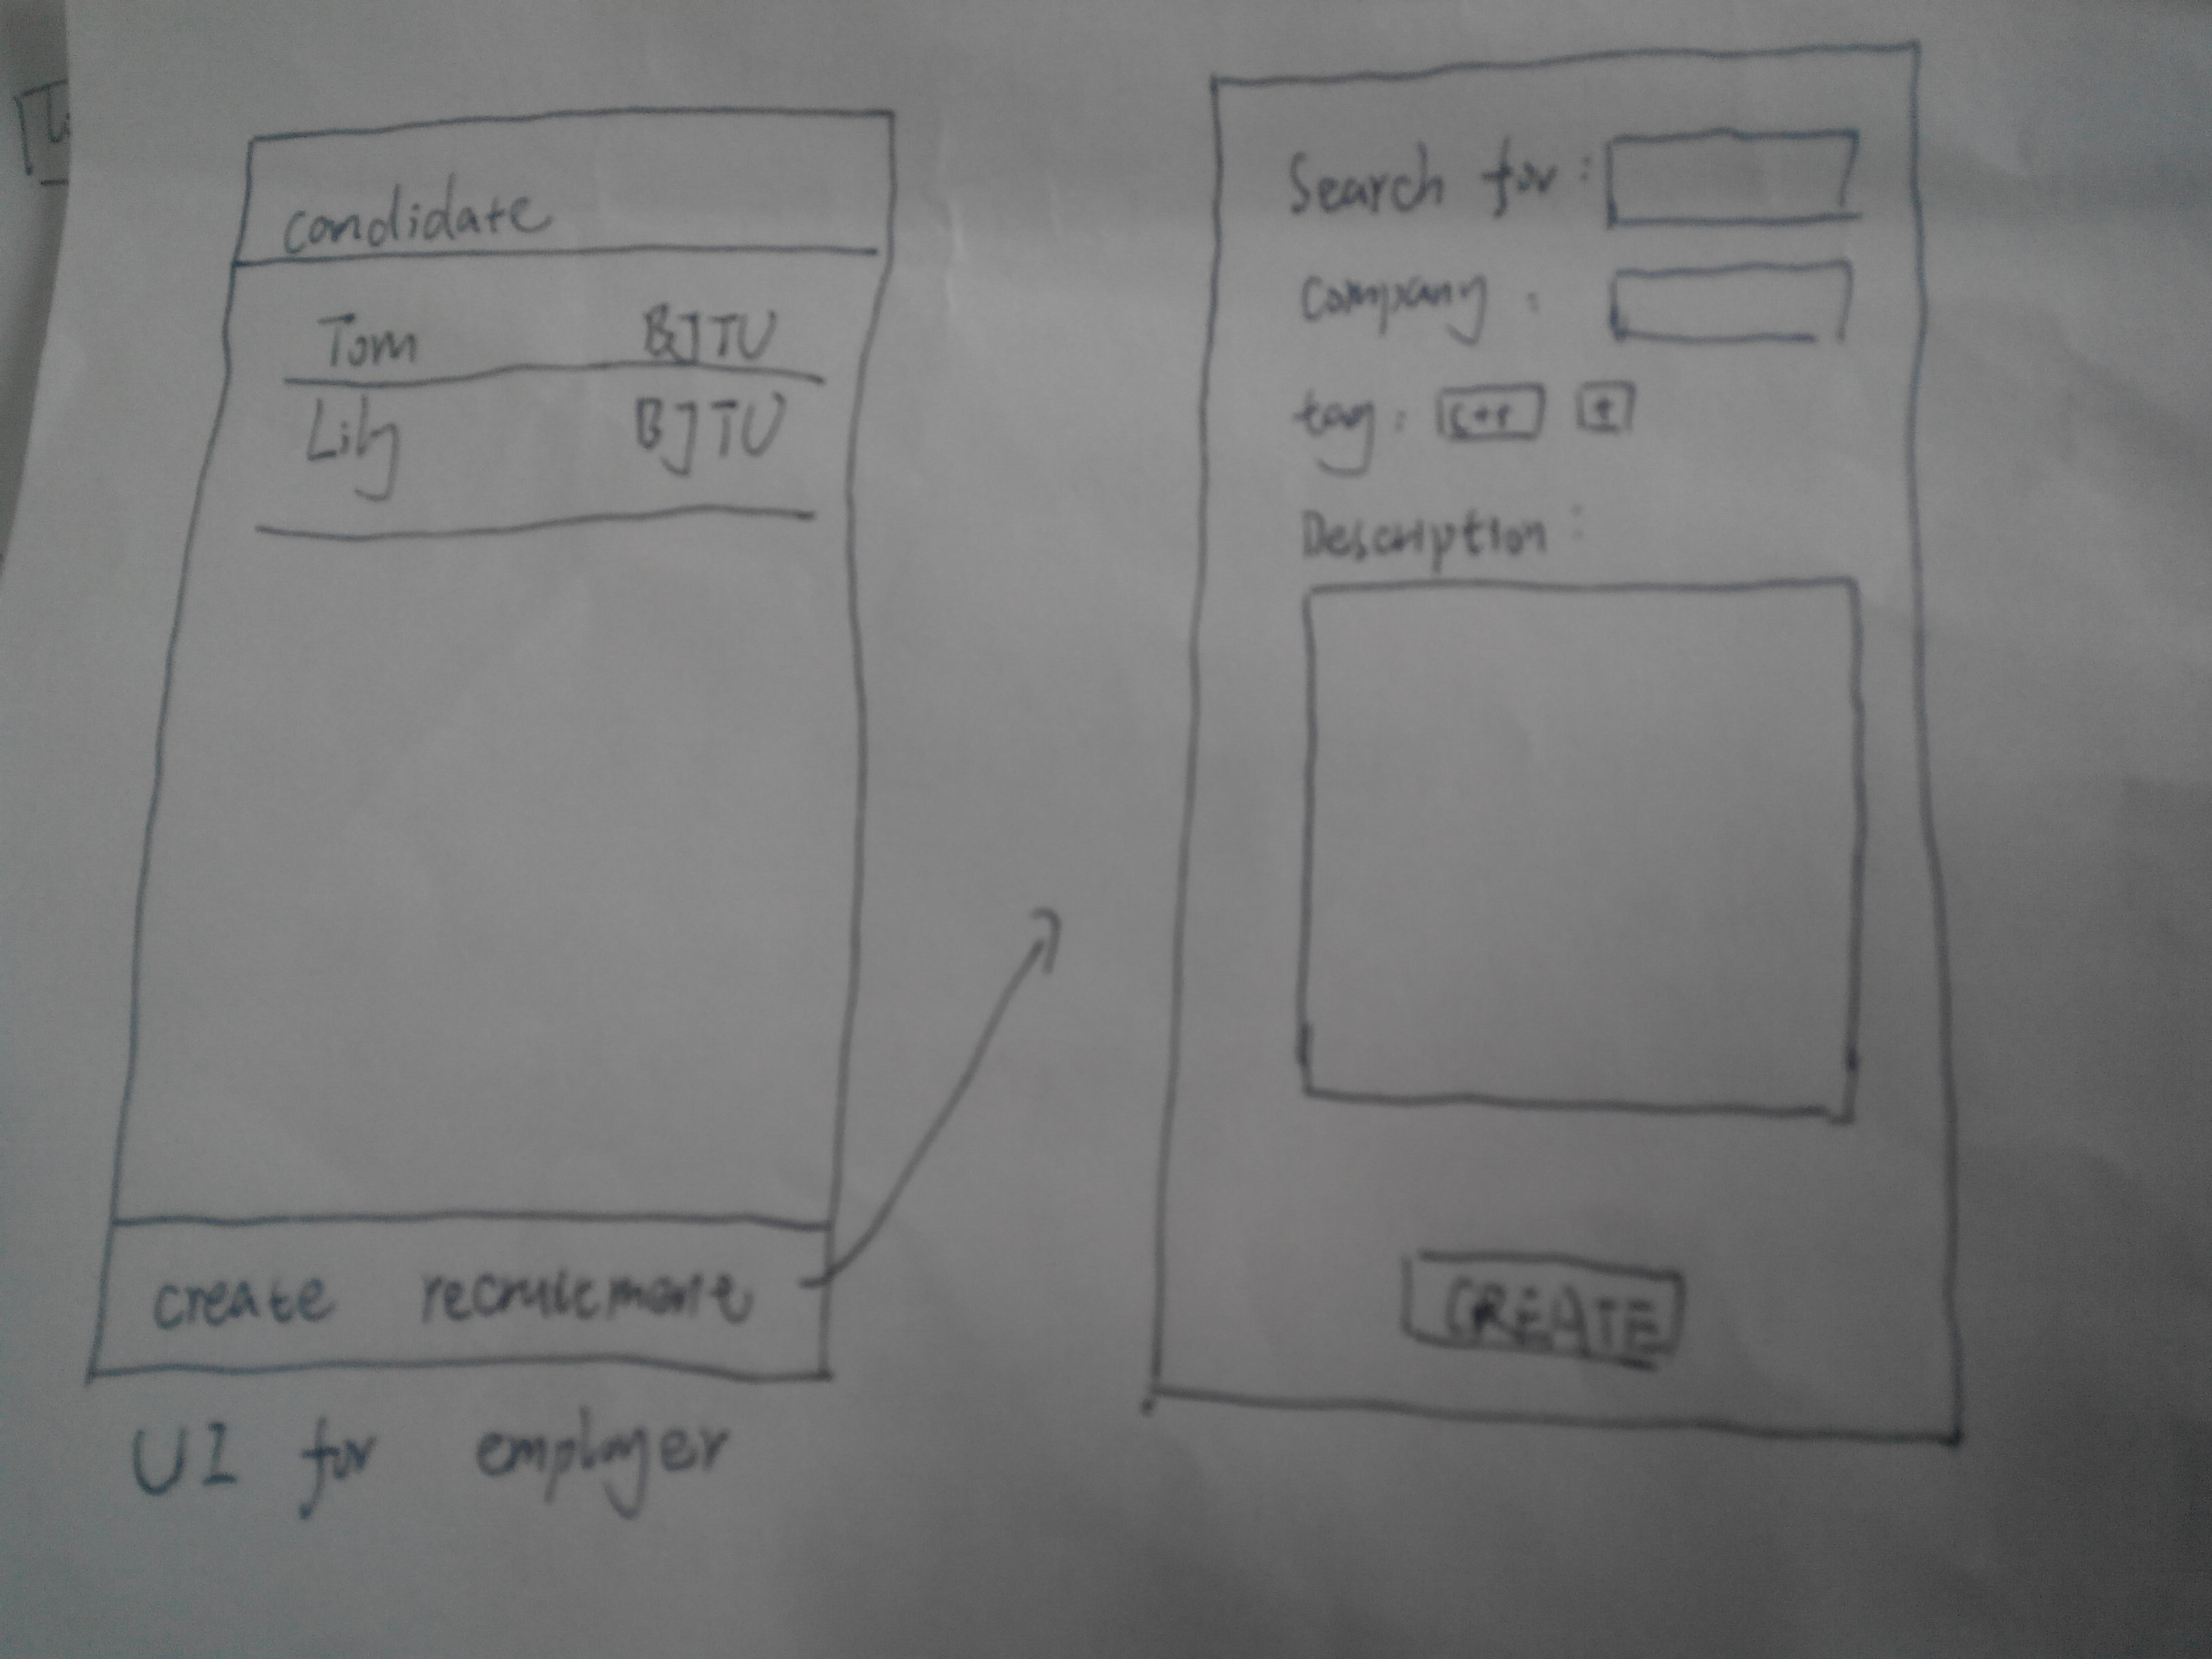 candidate
Tom BJTU
Lily BJTU
create recruitment
UI for employer
Search for:
Company:
tag: C++ +
Description:
CREATE